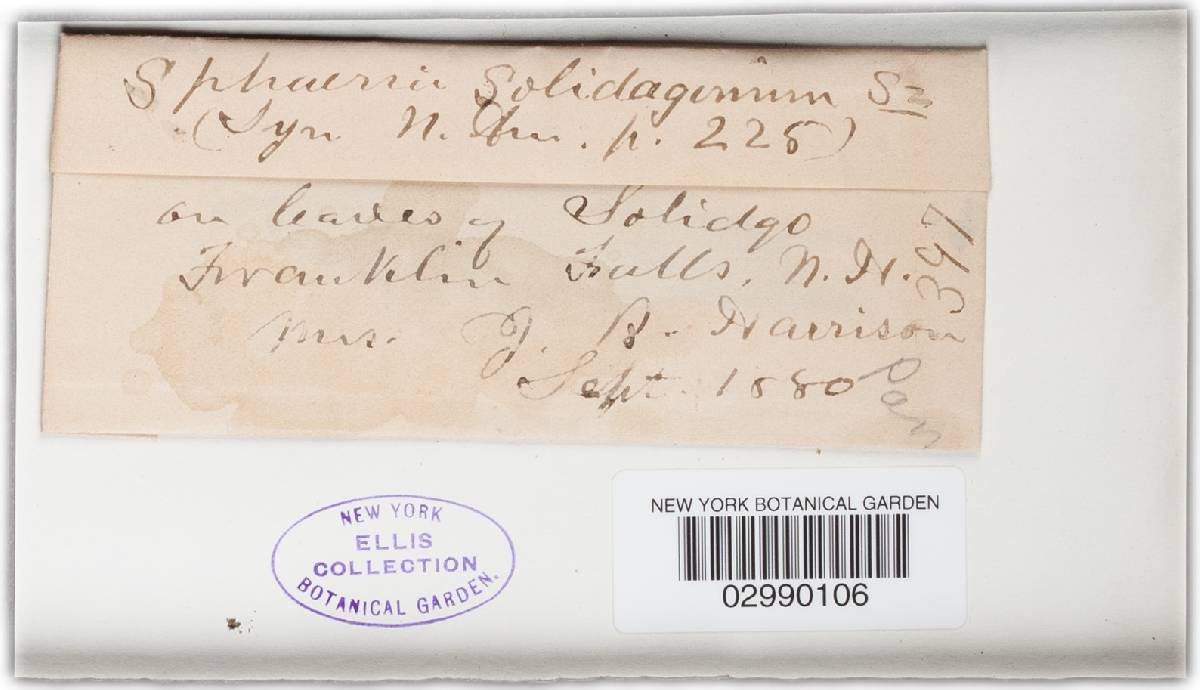 Sphaeria Solidaginum Sz
(Syn N. Am. p. 225)
on leaves of Solidgo
Franklin Falls, N. H.
Mrs. J. B. Harrison
Sept. 1880
397
NEW YORK
ELLIS
COLLECTION
BOTANICAL GARDEN.
NEW YORK BOTANICAL GARDEN
02990106